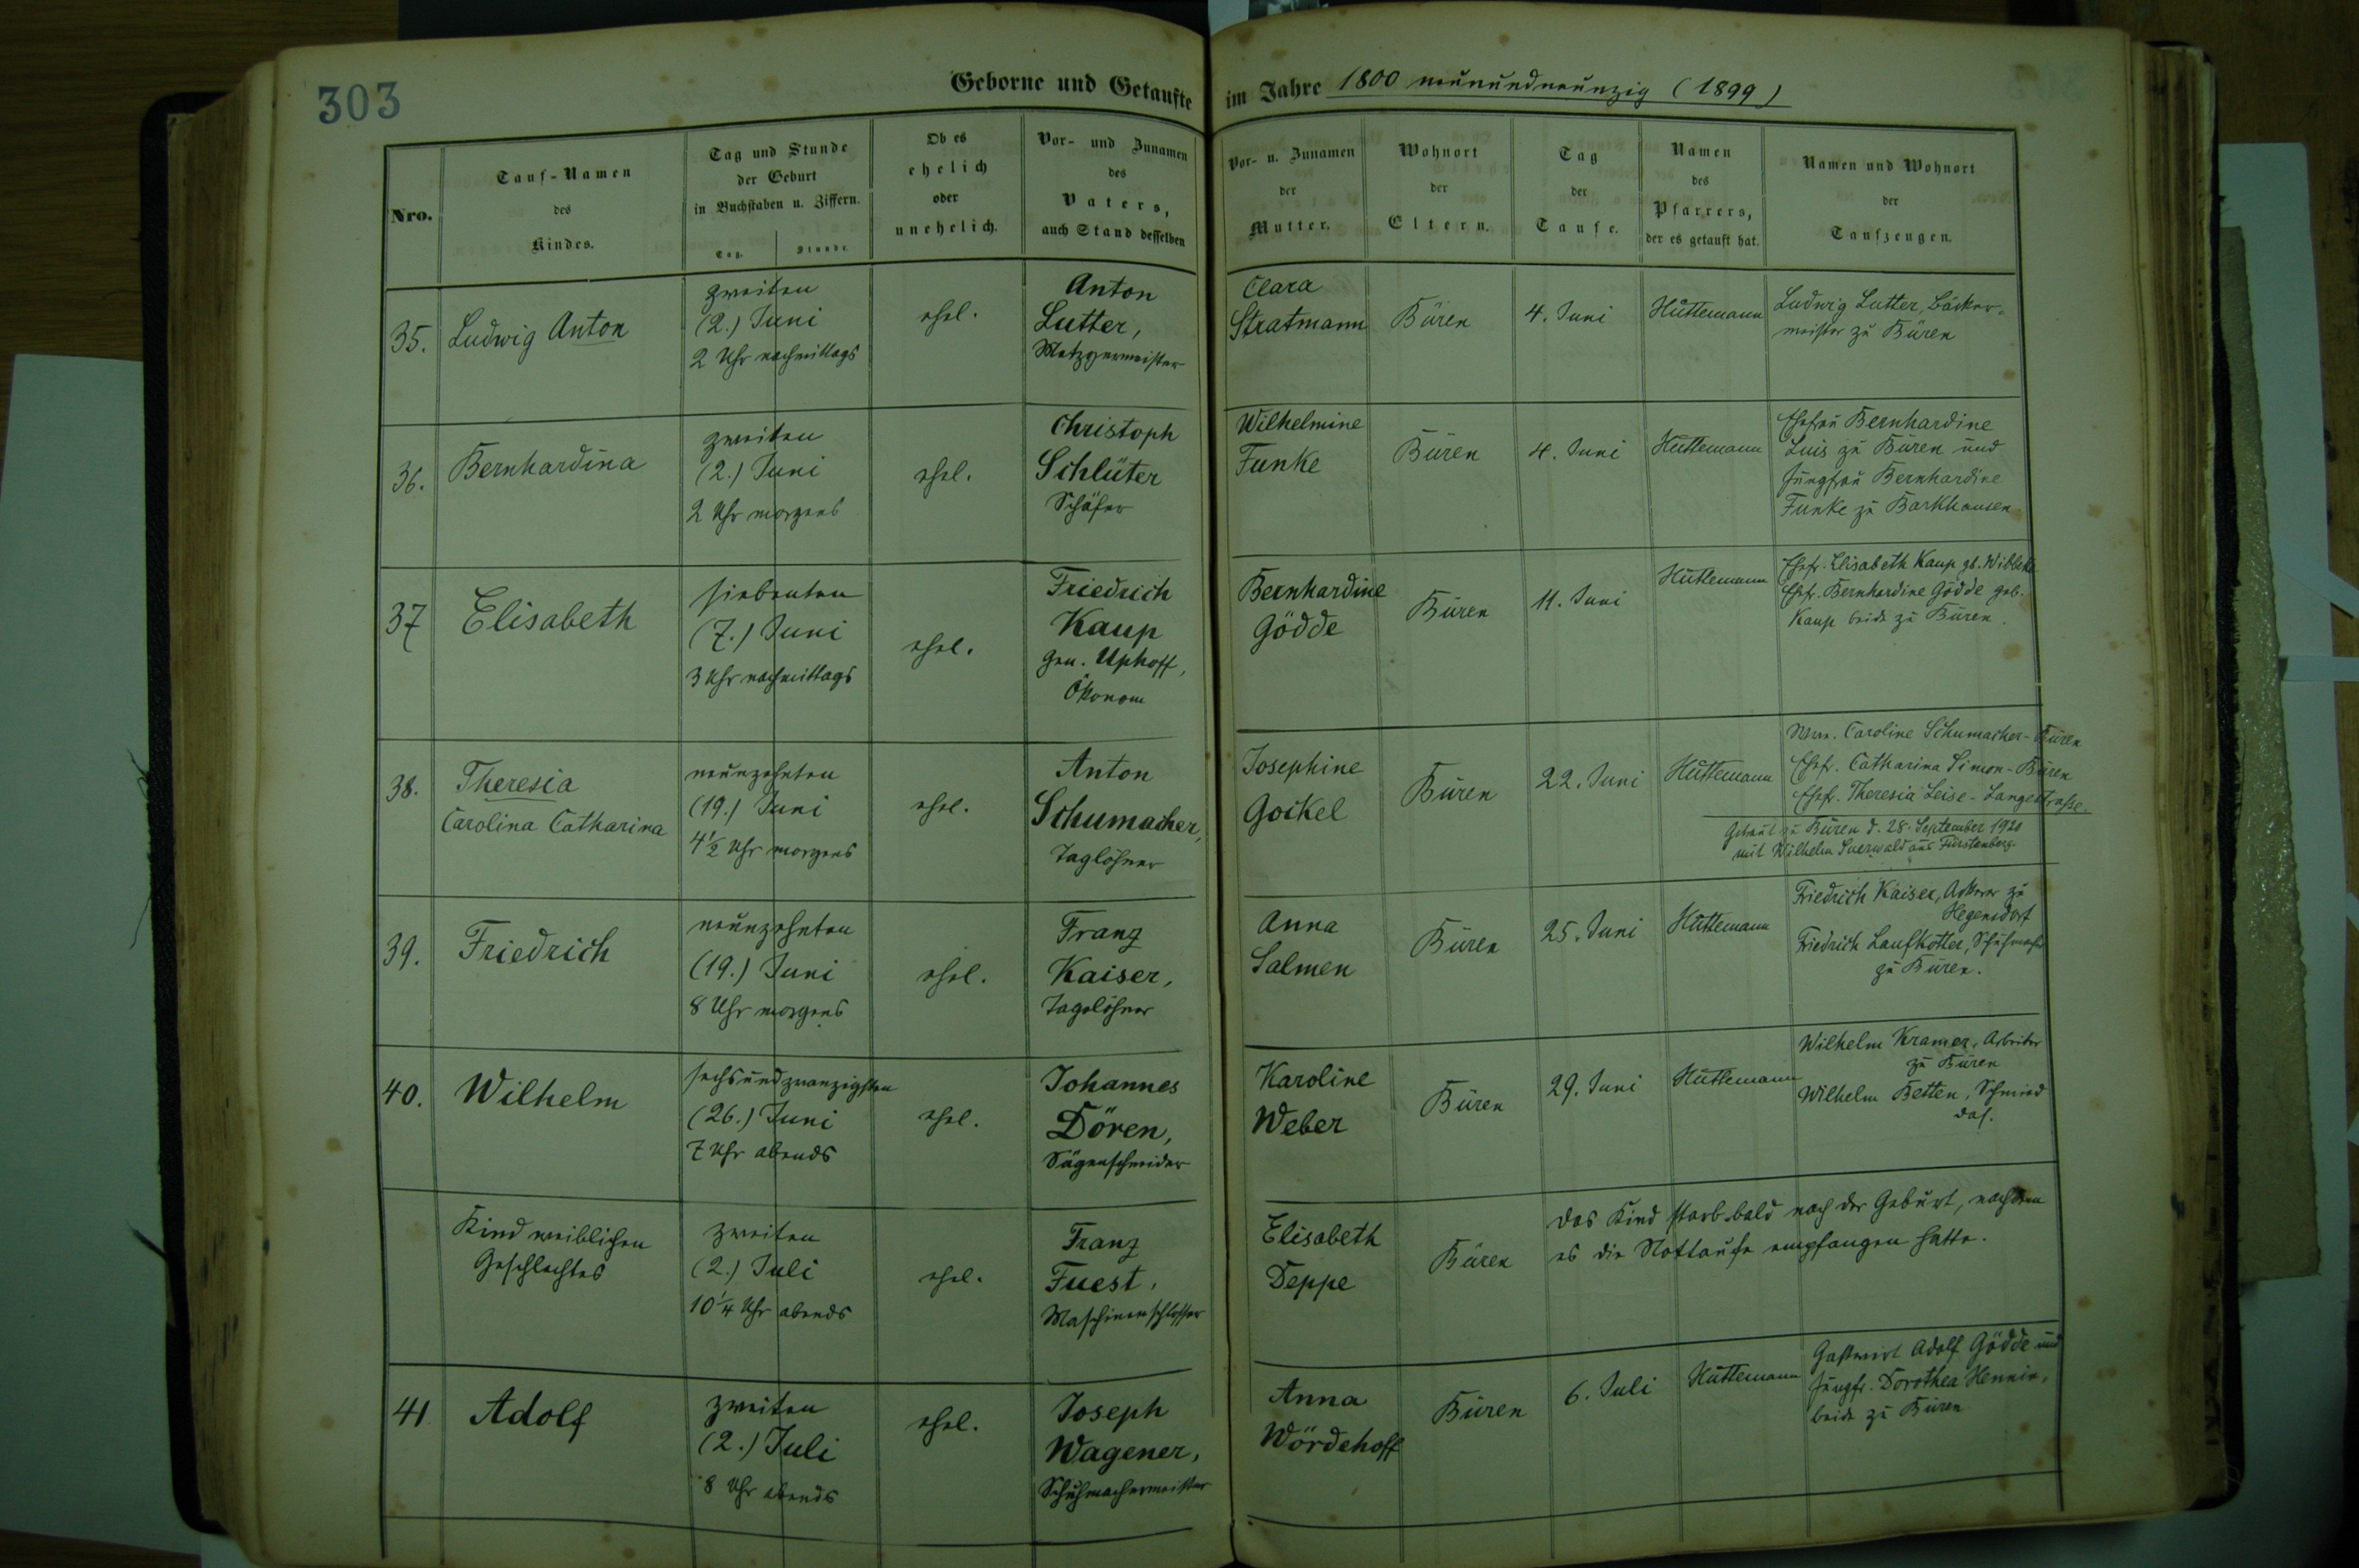 303
Geborne und Getaufte im Jahre 1800 neunundneunzig (1899)
Nro.
Tauf-Namen
des
Kindes.
Tag und Stunde
der Geburt
in Buchstaben u. Ziffern.
Tag. Stunde.
Ob es
ehelich
oder
unehelich.
Vor- und Zunamen
des
Vaters,
auch Stand desselben
Vor- u. Zunamen
der
Mutter.
Wohnort
der
Eltern.
Tag
der
Taufe.
Namen
des
Pfarrers,
der es getauft hat.
Namen und Wohnort
der
Taufzeugen.
35.
Ludwig Anton
zweiten
(2.) Juni
2 Uhr nachmittags
ehel.
Anton
Lutter,
Metzgermeister
Clara
Stratmann
Büren
4. Juni
Hüttemann
Ludwig Lutter, Bäcker-
meister zu Büren
36.
Bernhardina
zweiten
(2.) Juni
2 Uhr morgens
ehel.
Christoph
Schlüter
Schäfer
Wilhelmine
Funke
Büren
4. Juni
Hüttemann
Ehefrau Bernhardine
Luis zu Büren und
Jungfrau Bernhardine
Funke zu Barkhausen
37
Elisabeth
siebenten
(7.) Juni
3 Uhr nachmittags
ehel.
Friedrich
Kaup
gen. Uphoff,
Ökonom
Bernhardine
Gödde
Büren
11. Juni
Hüttemann
Ehefr. Elisabeth Kaup gb.
Ehfr. Bernhardine Gödde geb.
Kaup beide zu Büren.
38.
Theresia
Carolina Catharina
neunzehnten
(19.) Juni
4 1/2 Uhr morgens
ehel.
Anton
Schumacher,
Taglöhner
Josephine
Gockel
Büren
22. Juni
Hüttemann
Wwe. Caroline Schumacher - Büren
Ehefr. Catharina Simon - Büren
Ehefr. Theresia Leise - Langestraße.
Getraut zu Büren d. 28. September 1920
mit Wilhelm Suerwald aus Fürstenberg.
39.
Friedrich
neunzehnten
(19.) Juni
8 Uhr morgens
ehel.
Franz
Kaiser,
Tagelöhner
Anna
Salmen
Büren
25. Juni
Hüttemann
Friedrich Kaiser, Ackerer zu
Hegensdorf
Friedrich Laufkötter, Schuhmacher
zu Büren.
40.
Wilhelm
sechsundzwanzigsten
(26.) Juni
7 Uhr abends
ehel.
Johannes
Dören,
Sägenschneider
Karoline
Weber
Büren
29. Juni
Hüttemann
Wilhelm Kramer, Arbeiter
zu Büren
Wilhelm Betten, Schmied
das.
Kind weiblichen
Geschlechtes
zweiten
(2.) Juli
10 1/4 Uhr abends
ehel.
Franz
Fuest,
Maschinenschlosser
Elisabeth
Deppe
Büren
Das Kind starb bald nach der Geburt, nachdem
es die Nottaufe empfangen hatte.
41.
Adolf
zweiten
(2.) Juli
8 Uhr abends
ehel.
Joseph
Wagener,
Schuhmachermeister
Anna
Wördehoff
Büren
6. Juli
Hüttemann
Gastwirt Adolf Gödde und
Jungfr. Dorothea
beide zu Büren